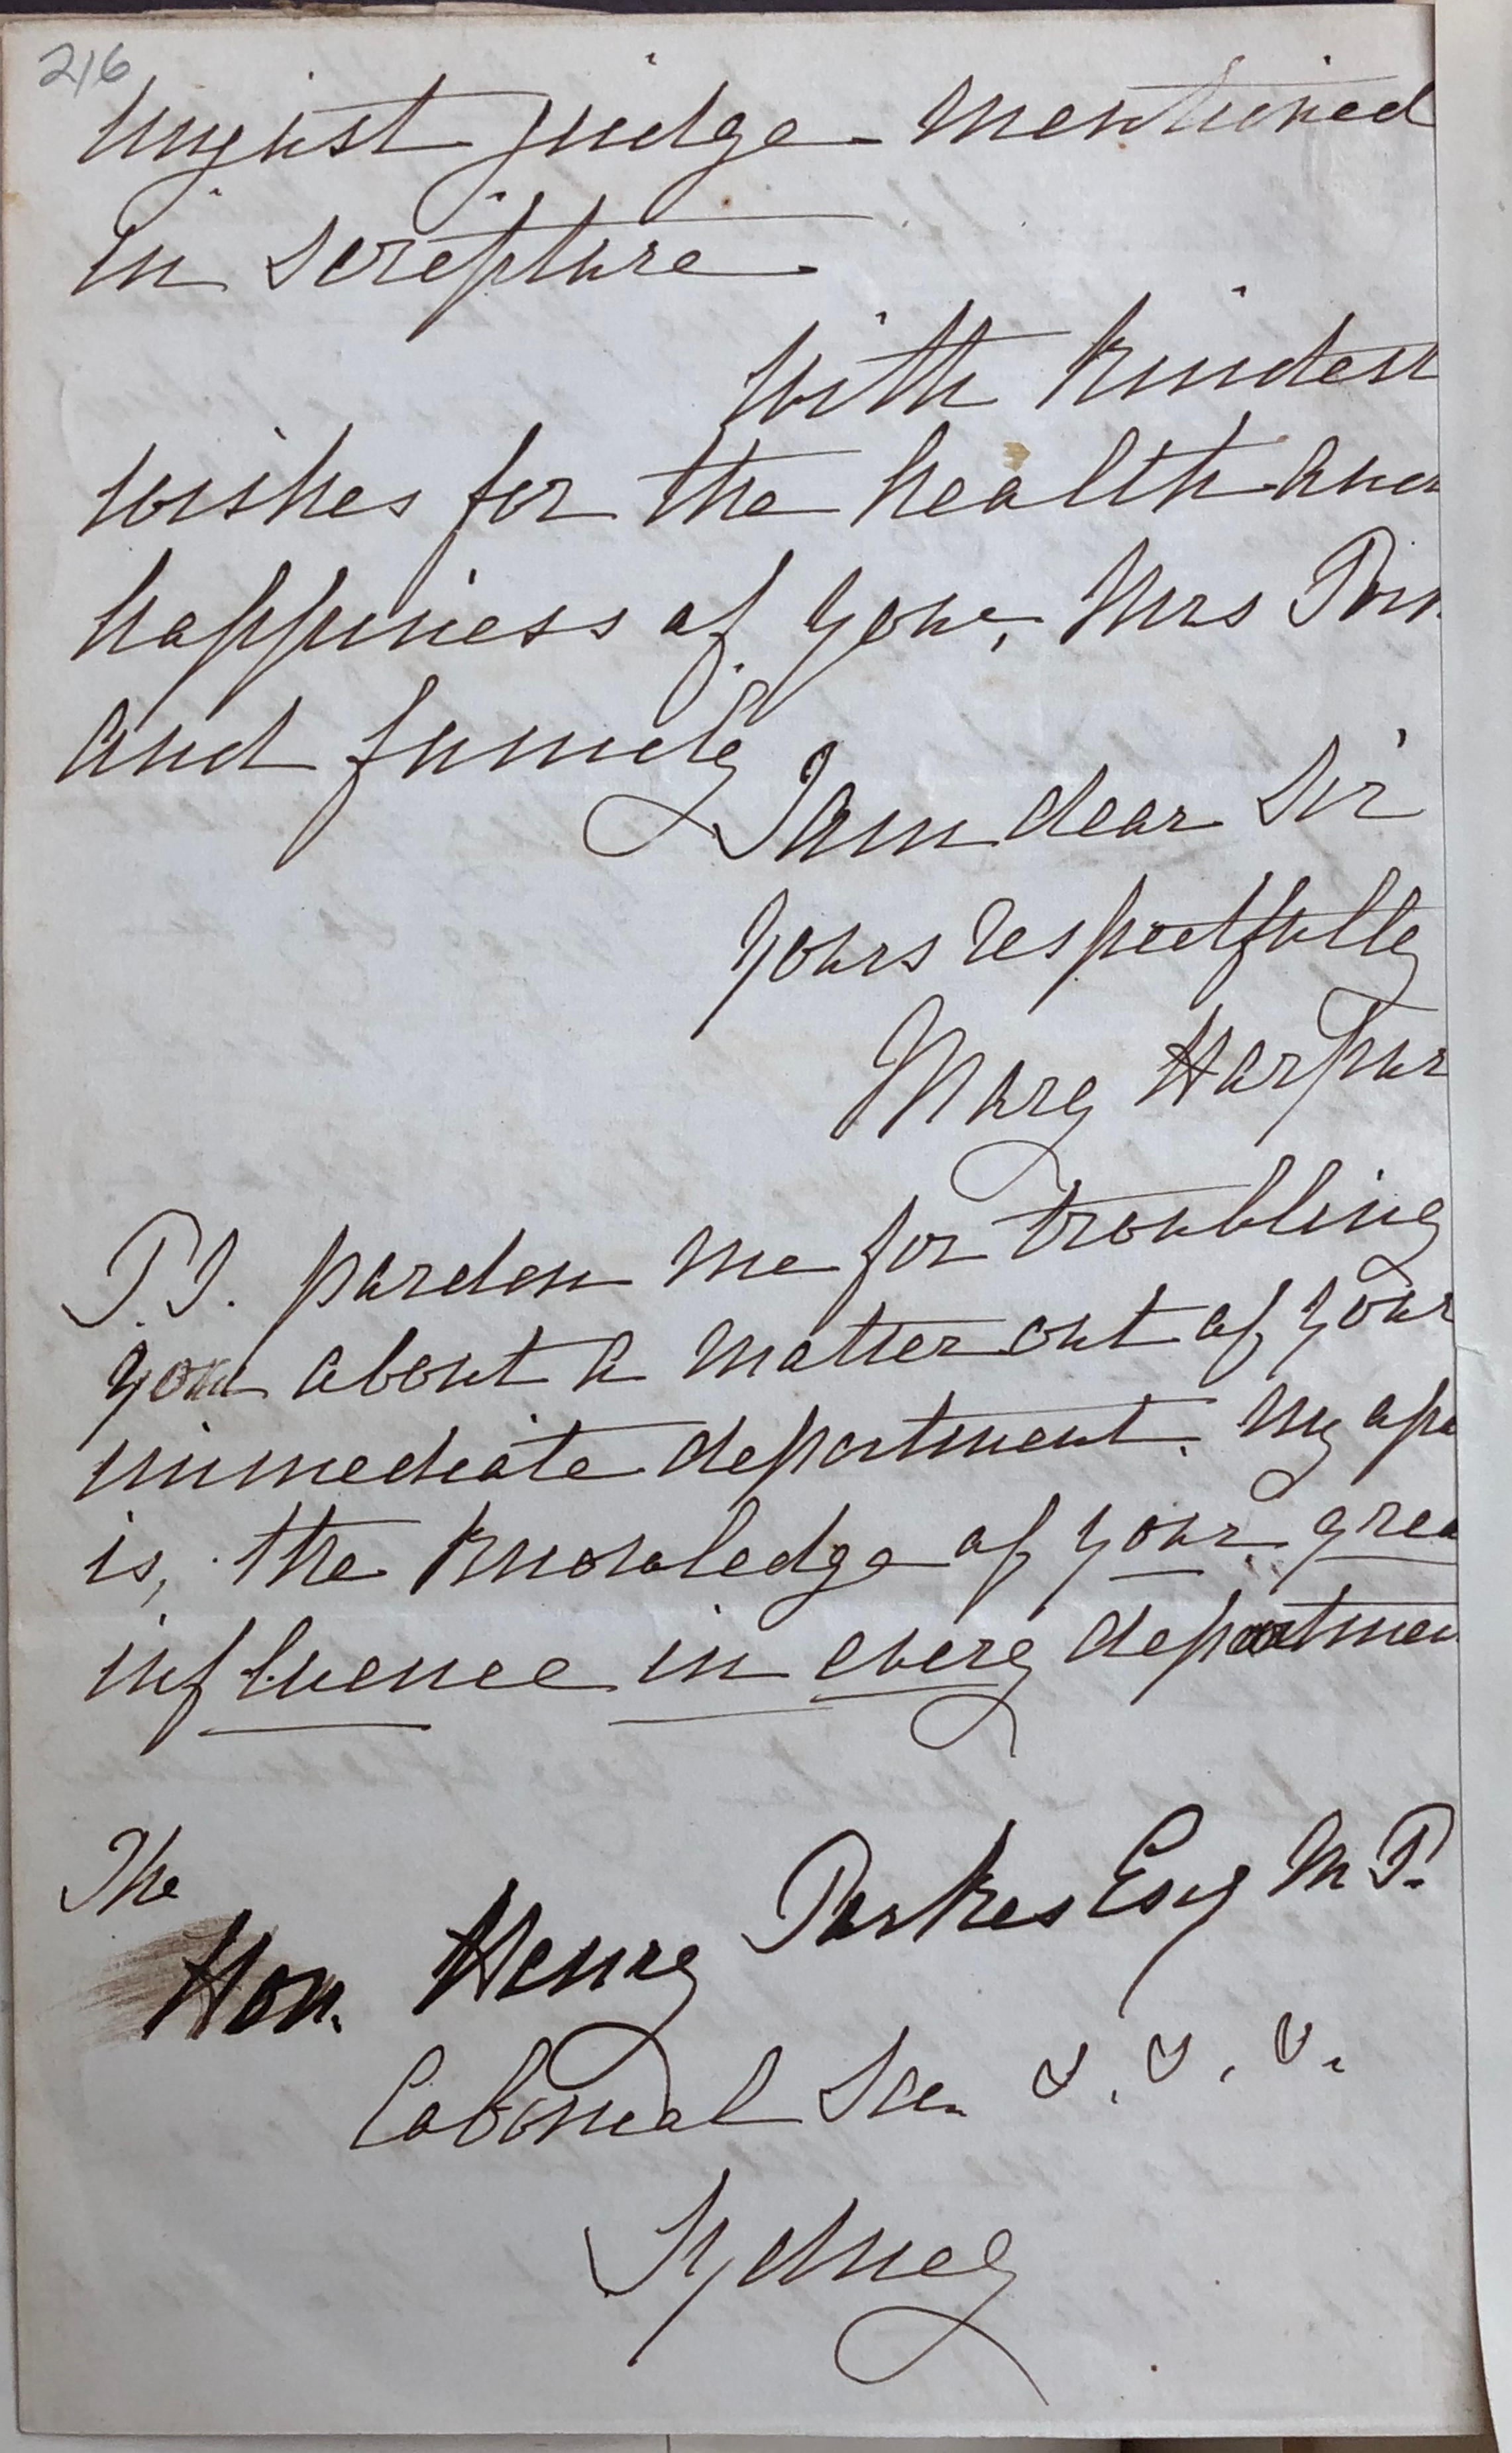 216
unjust judge mentioned
in scripture
With kindest
wishes for the health and
happiness of you, Mrs
and family
I am dear Sir
Yours respectfully
Mary Harpur
P.S. pardon me for troubling
you about a matter out of your
immediate department. My apo
is, the knowledge of your grea
influence in every departmen
The
Hon. Henry Parkes Esq M.P.
Colonial Sec.
Sydney